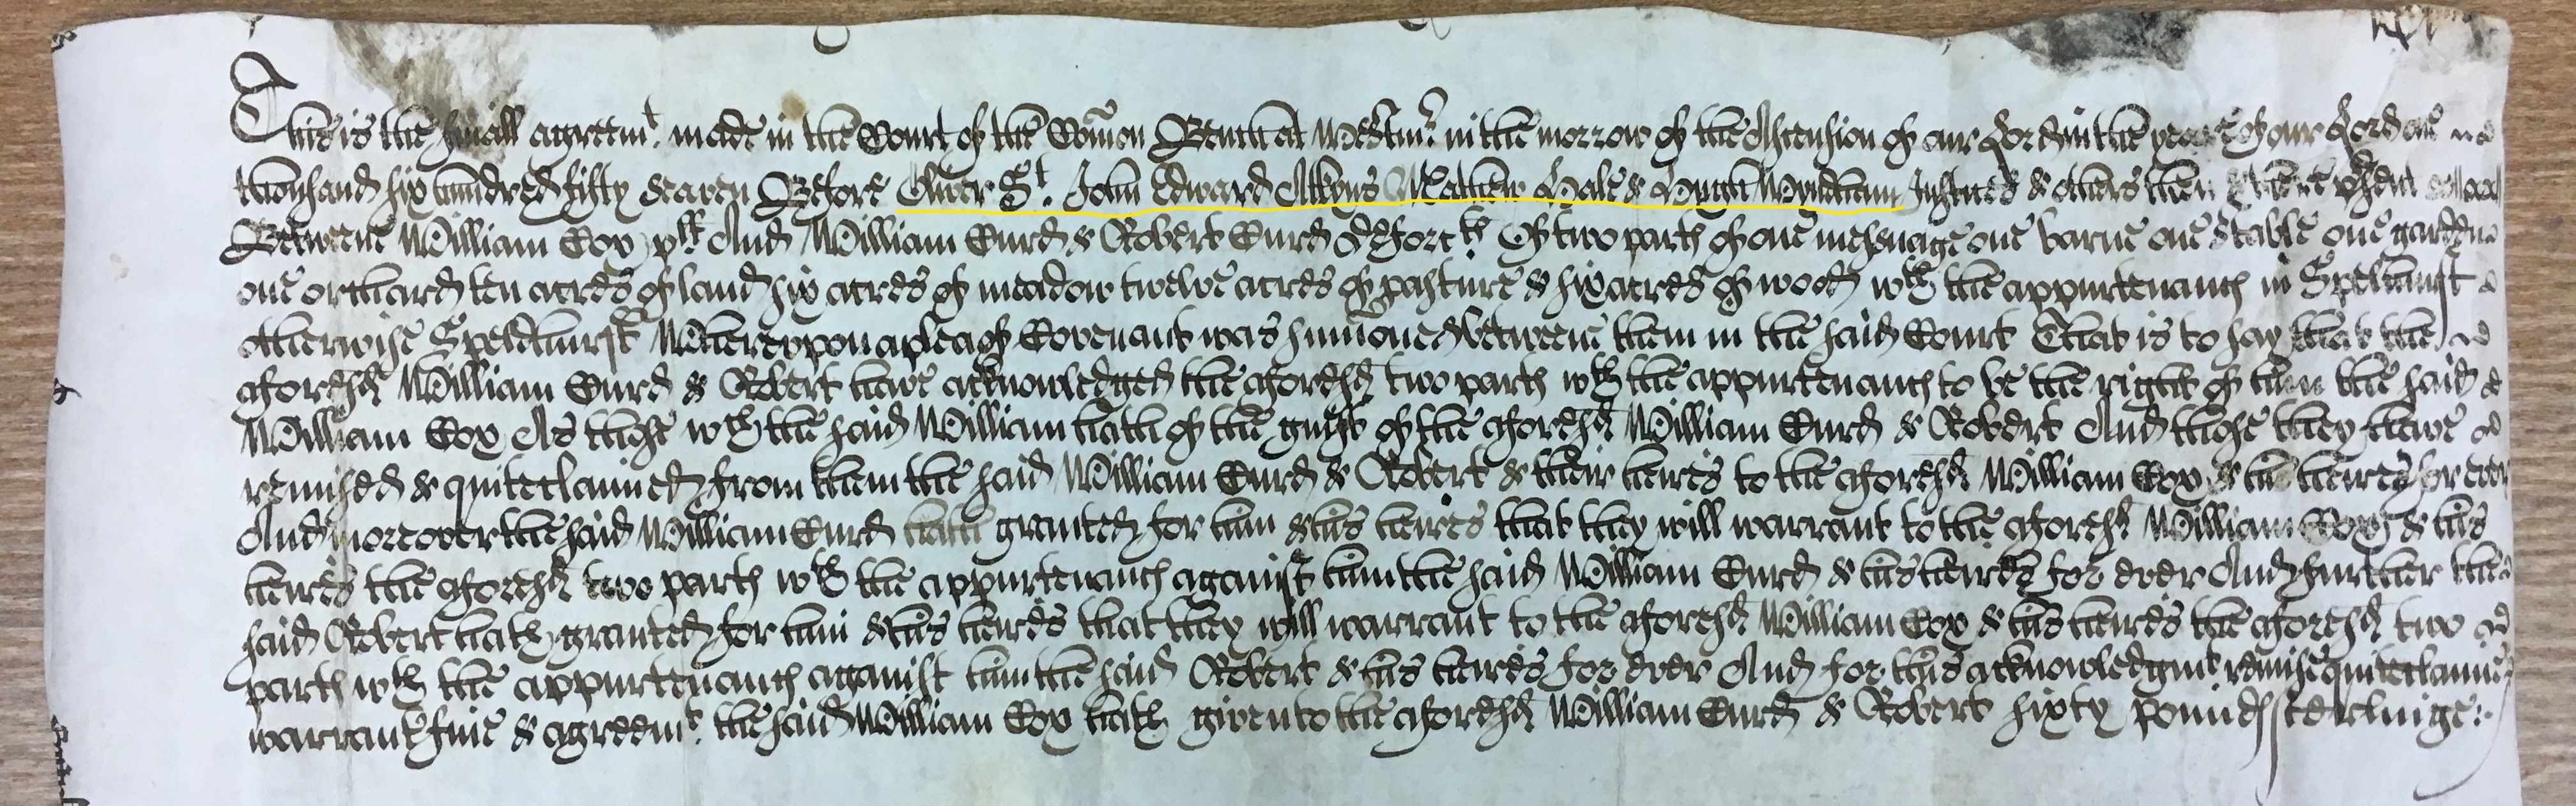 This is the finall agreemt. made in the Court of the Com̃on Bench at Westmr. in the morrow of the Ascension of our Lord in the yeare of our Lord one
thousand six hundred fifty seaven Before Oliver St. John Edward Atkyns Mathew Hale & Hugh Wyndham Justices & others then & there p̃sent
Betweene William Cox plt And William Curd & Robert Curd Deforcts Of two parts of one messuage one barne one stable one garden
one orchard ten acres of land six acres of meadow twelve acres of pasture & six acres of wood wth the appurtenancs in Spelhurst
otherwise Speldhurst Whereupon a plea of Covenant was sum̃oned betweene them in the said Court That is to say that the
aforesd William Curd & Robert have acknowledged the aforesd two parts wth the appurtenancs to be the right of him the said
William Cox As those wch the said William hath of the guift of the aforesd William Curd & Robert And those they have
remised & quiteclaimed from them the said William Curd & Robert & their heires to the aforesd William Cox & his heires for ever
And moreover the said William Curd hath granted for him & his heires that they will warrant to the aforesd William Cox & his
heires the aforesd two parts wth the appurtenancs against him the said William Curd & his heires for ever And further the
said Robert hath granted for him & his heires that they will warrant to the aforesd William Cox & his heires the aforesd two
parts wth the appurtenancs against him the said Robert & his heires for ever And for this acknowledgmt remise quiteclaime
warrant fine & agreemt. the said William Cox hath given to the aforesd William Curd & Robert sixty pounds sterlinge: